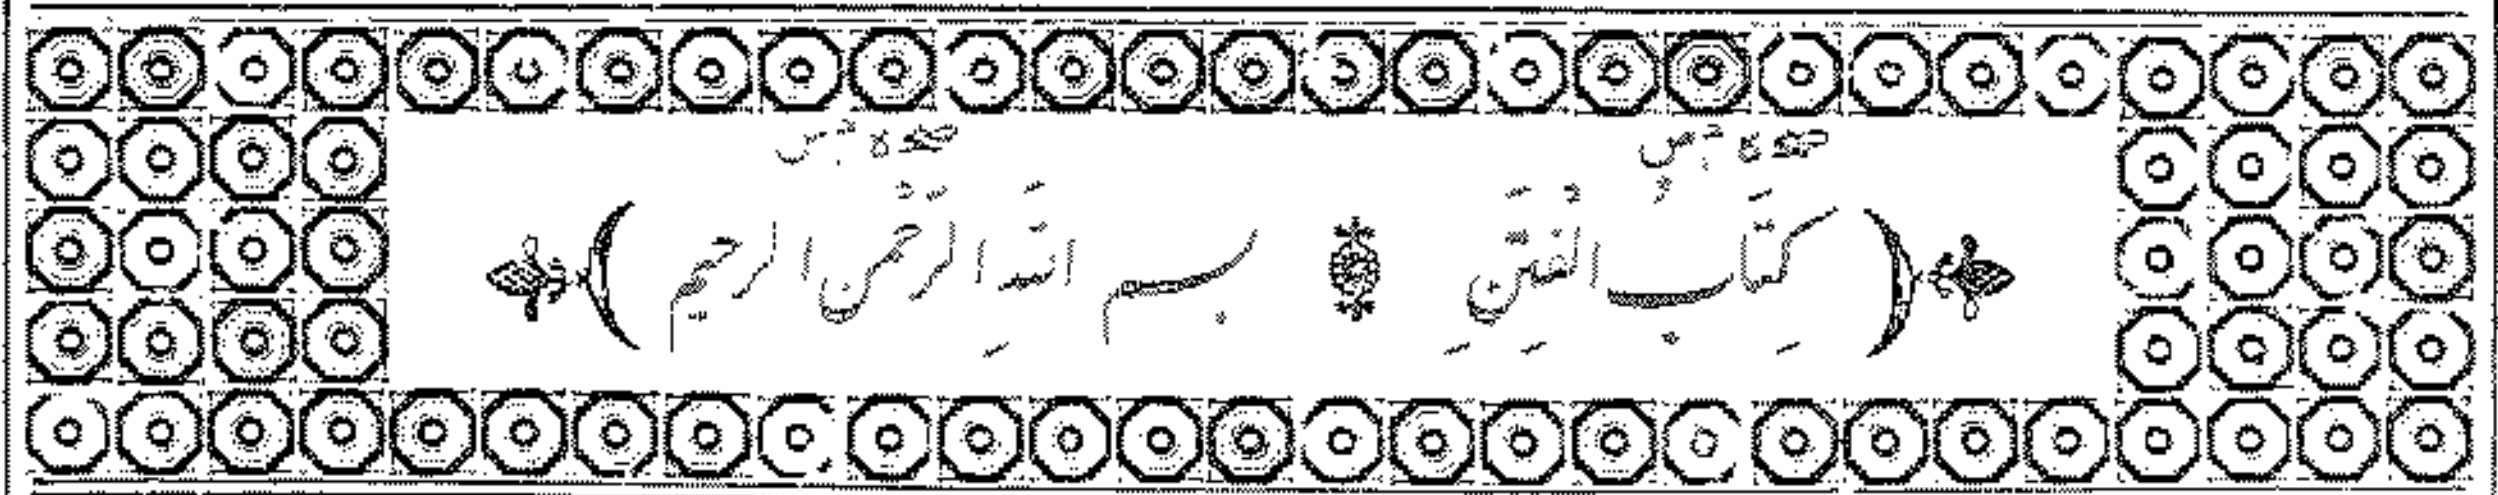 كِتَابُ الْفِتَنِ بسم اللهِ الرَّحْمن الرحيم